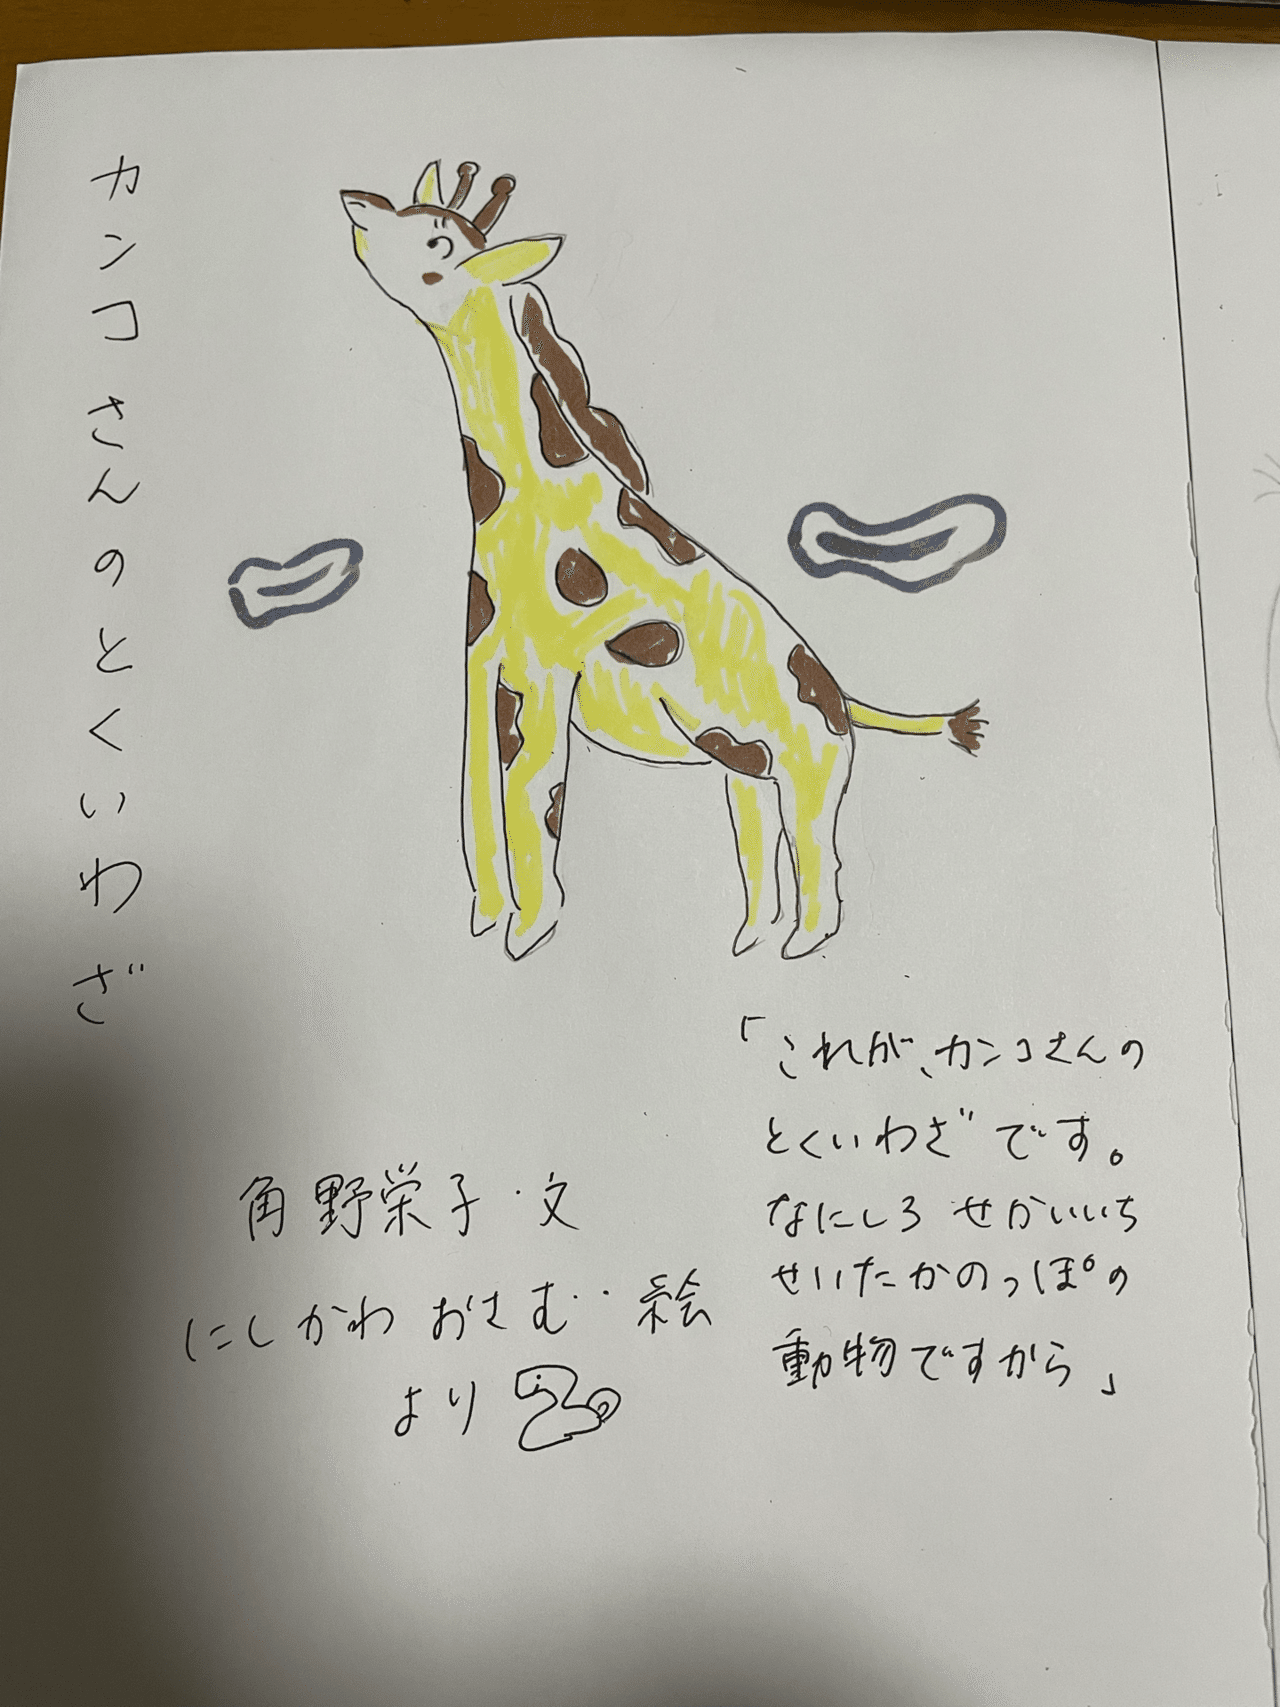 カンコさんのとくいわざ
「これが、カンコさんの
とくいわざです。
なにしろせかいいち
せいたかのっぽの
動物ですから」
角野栄子・文
にしかわおさむ・絵
より